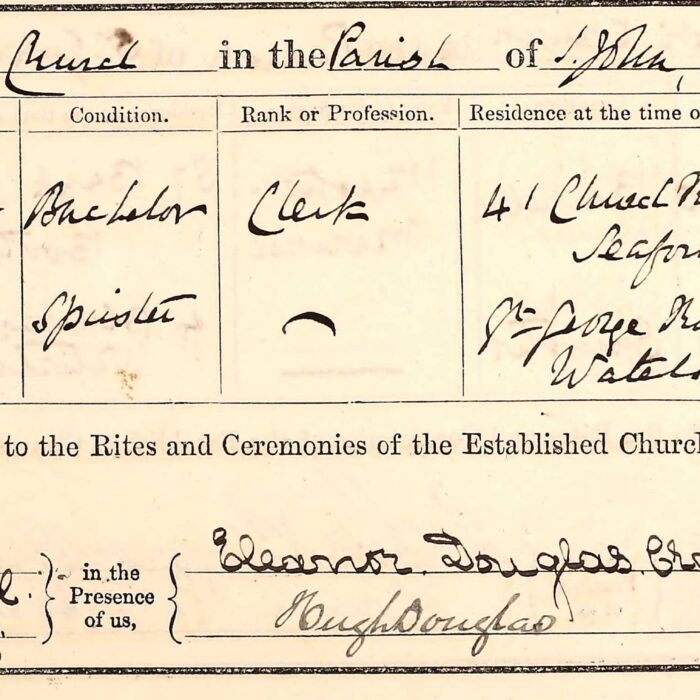 Church in the Parish of S. John,
Condition. Rank or Profession. Residence at the time o
Bachelor Clerk 41 Church R
Seafor
Spinster Gt George R
Waterlo
to the Rites and Ceremonies of the Established Church
Eleanor Douglas Cro
in the
Presence
of us,
Hugh Douglas